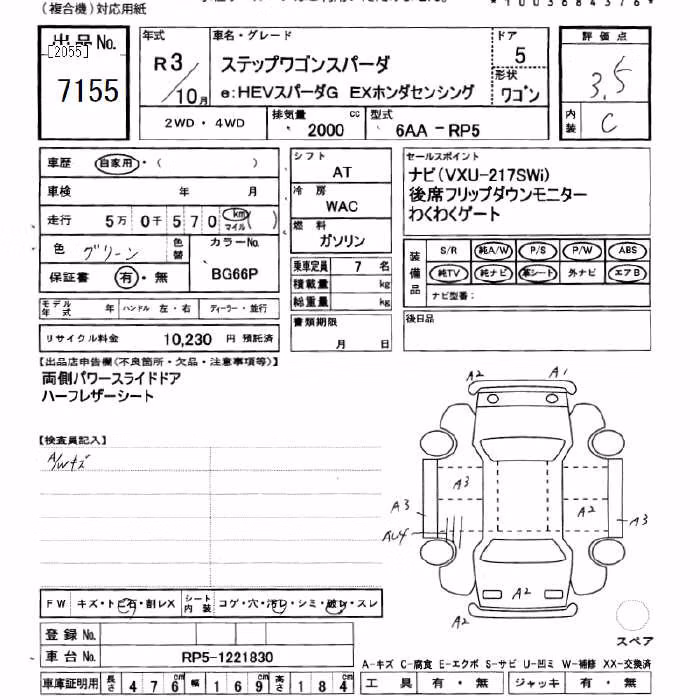 (複合機)対応用紙
*1003684376*
出品No.
[2055]
7155
年式
R3/10月
車名・グレード
ステップワゴンスパーダ
e:HEVスパーダG EXホンダセンシング
ドア
5
形状
ワゴン
評価点
3.5
内装
C
2WD・4WD
排気量
2000 cc
型式
6AA-RP5
車歴
自家用・( )
車検 年 月
走行 5万0千570 km マイル ( )
色 グリーン
色替
カラーNo.
BG66P
保証書 有・無
モデル年式 年 ハンドル 左・右 ディーラー・並行
リサイクル料金 10,230 円 預託済
シフト
AT
冷房
WAC
燃料
ガソリン
乗車定員 7 名
積載量 kg
総重量 kg
書類期限
月 日
セールスポイント
ナビ(VXU-217SWi)
後席フリップダウンモニター
わくわくゲート
装備品
S/R 純A/W P/S P/W ABS
純TV 純ナビ 革シート 外ナビ エアB
ナビ型番:
後日品
【出品店申告欄(不良箇所・欠品・注意事項等)】
両側パワースライドドア
ハーフレザーシート
【検査員記入】
A/Wキズ
A2
A1
A3
A3
A2
A3
AU4
A2
A2
スペア
FW キズ・トビ石・割レX
シート内装 コゲ・穴・汚レ・シミ・破レ・スレ
登録No.
車台No. RP5-1221830
車庫証明用 長さ 476 cm 幅 169 cm 高さ 184 cm
A-キズ C-腐食 E-エクボ S-サビ U-凹ミ W-補修 XX-交換済
工具 有・無 ジャッキ 有・無